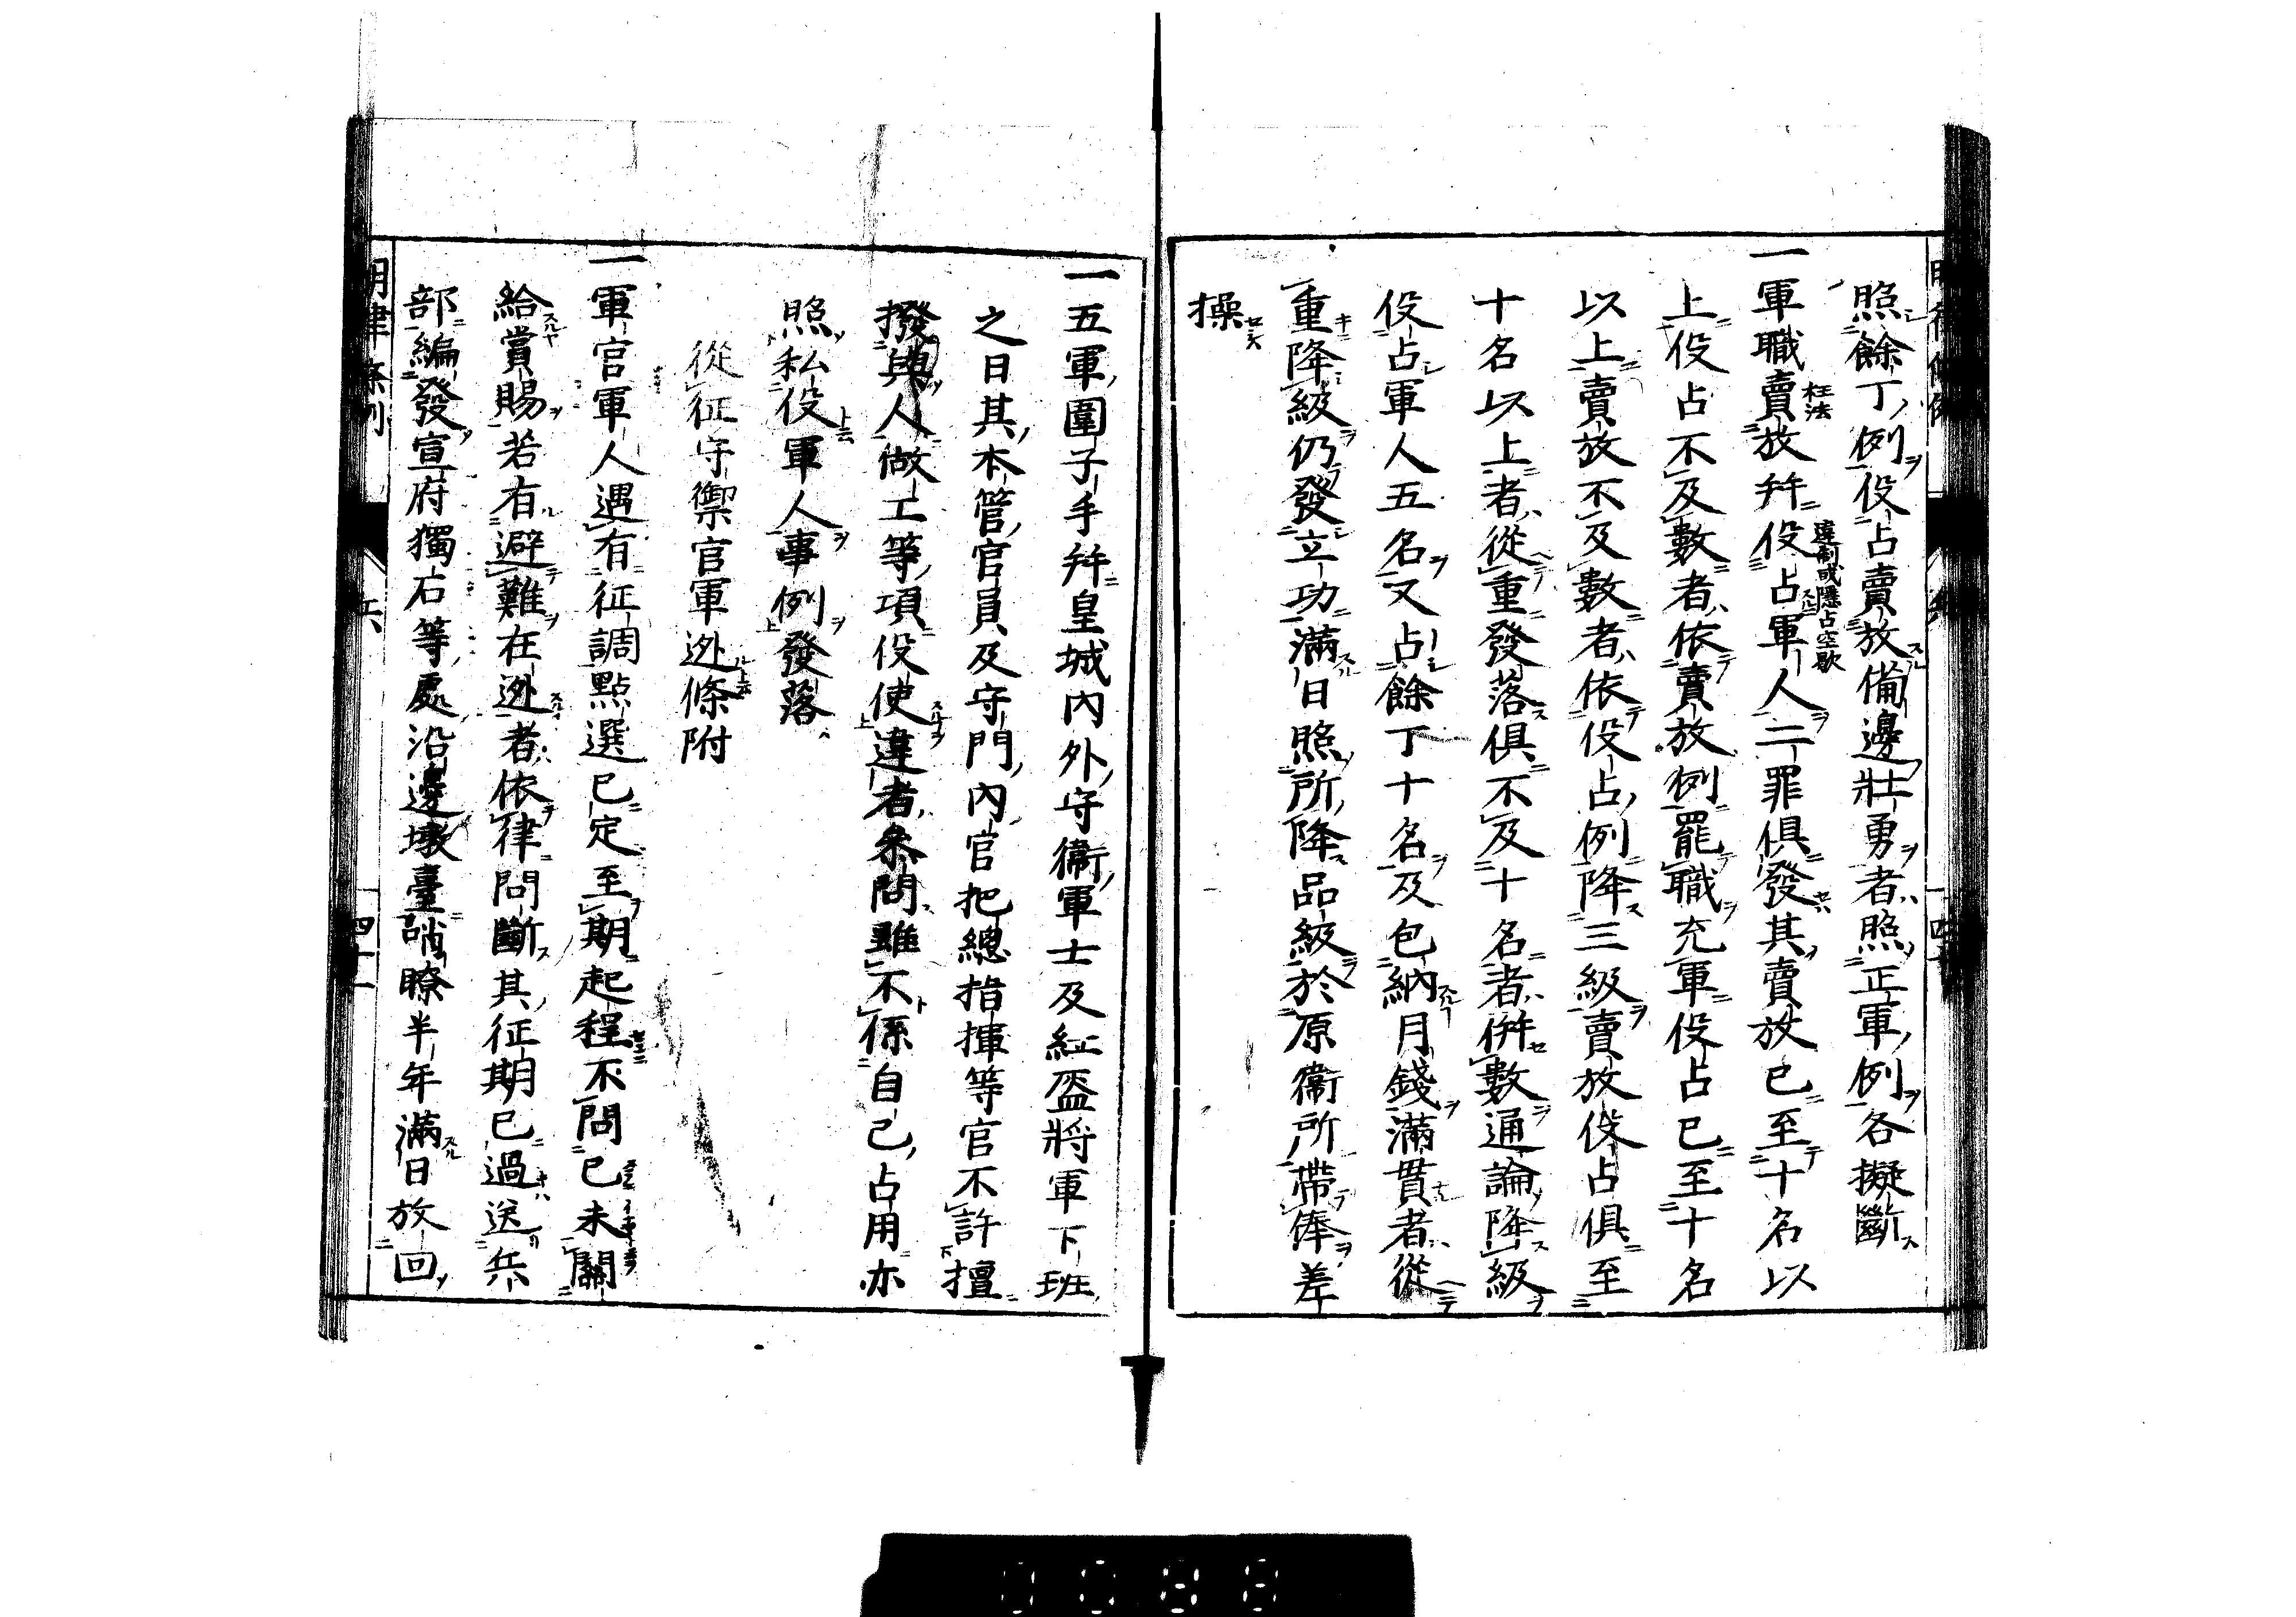 照餘丁例役占賣放備邊壯勇者照正軍例各擬斷
一軍職賣放幷役占軍人二罪俱發其賣放已至十名以
枉法
違制或隱占空歇
上役占不及數者依賣放例罷職充軍役占已至十名
以上賣放不及數者依役占例降三級賣放役占俱至
十名以上者從重發落俱不及十名者併數通論降級
役占軍人五名又占餘丁十名及包納月錢滿貫者從
重降級仍發立功滿日照所降品級於原衞所帶俸差
操
一五軍圍子手幷皇城內外守衞軍士及紅盔將軍下班
之日其本管官員及守門內官把總指揮等官不許擅
撥與人做工等項役使違者參問雖不係自己占用亦
照私役軍人事例發落
從征守禦官軍逃條附
一軍官軍人遇有征調點選已定至期起程不問已未關
給賞賜若有避難在逃者依律問斷其征期已過送兵
部編發宣府獨石等處沿邊墩臺哨瞭半年滿日放回
明律條例
四十一